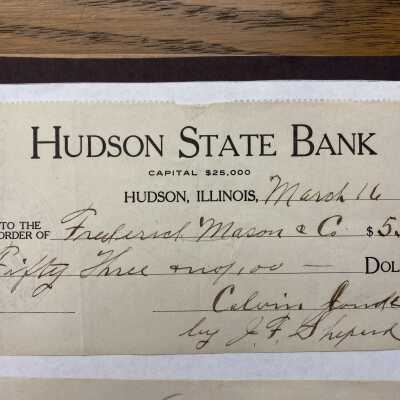 HUDSON STATE BANK
CAPITAL $25,000
HUDSON, ILLINOIS, March 16
TO THE
ORDER OF Frederick Mason & Co $53
Fifty Three & no/100 — DOL
Calvin
by J. F. Sheperd